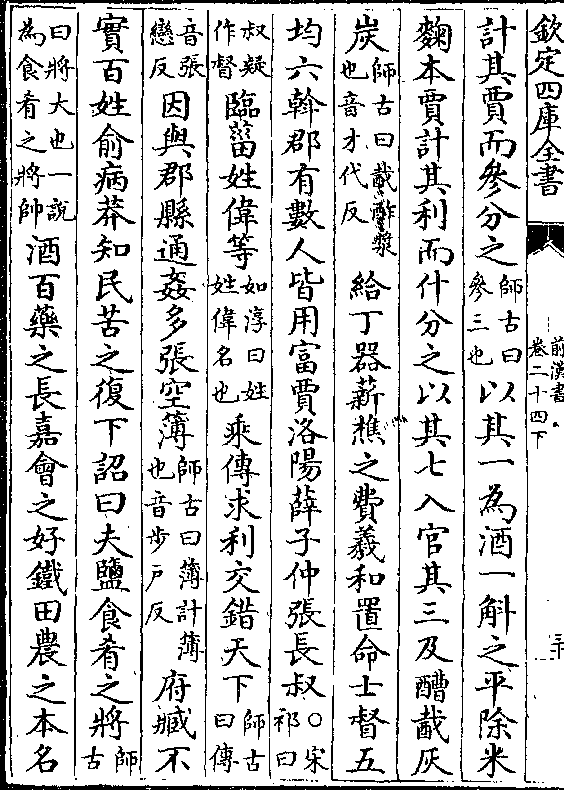 欽定四庫全書
前漢書
卷二十四下
三十
計其賈而參分之師古曰參三也以其一為酒一斛之平除米
麴本賈計其利而什分之以其七入官其三及醩酨灰
炭師古曰酨酢漿也音才代反給丁器薪樵之費羲和置命士督五
均六幹郡有數人皆用富賈洛陽薛子仲張長叔○宋祁曰
叔疑作督臨菑姓偉等如淳曰姓姓偉名也乘傳求利交錯天下師古曰傳
音張戀反因與郡縣通姦多張空簿師古曰簿計簿也音步戶反府臧不
實百姓俞病莽知民苦之復下詔曰夫鹽食肴之將師古
曰將大也一說為食肴之將帥酒百藥之長嘉會之好鐵田農之本名